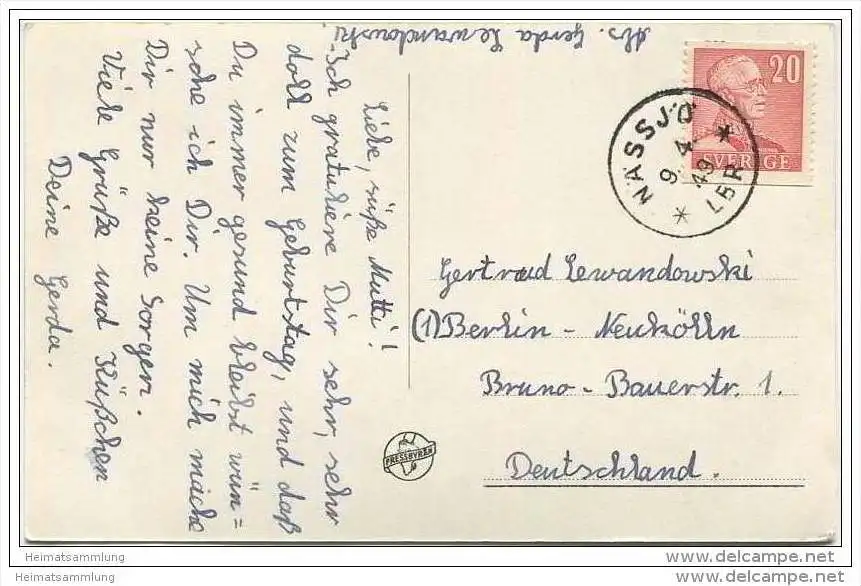 Abs. Gerda Lewandowski.
Liebe, süße Mutti!
Ich gratuliere Dir sehr, sehr
doll zum Geburtstag, und daß
Du immer gesund bleibst wün=
sche ich Dir. Um mich mache
Dir nur keine Sorgen.
Viele Grüße und Küßchen
Deine Gerda.
20
SVERIGE
NÄSSJÖ
9. 4. 49
LBR
Gertrud Lewandowski
(1) Berlin - Neukölln
Bruno - Bauerstr. 1.
Deutschland.
PRESSBYRÅN
Heimatsammlung
Heimatsammlung
post-cards.delcampe.net
post-cards.delcampe.net